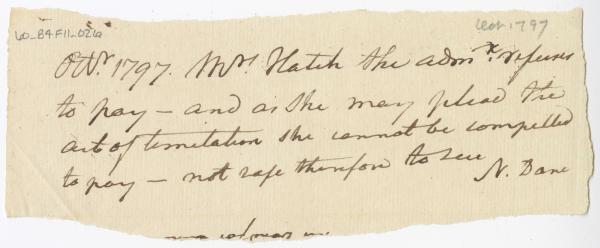 LO_B4F11_026a
Oct. 1797
Octr. 1797. Mrs. Hatch the admx. refuses
to pay — and as she may plead the
act of limitation she cannot be compelled
to pay — not safe therefore to sue
N. Dane